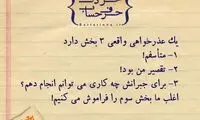 حرف
حساب
یک عذرخواهی واقعی ۳ بخش دارد
۱- متأسفم!
۲- تقصیر من بود!
۳- برای جبرانش چه کاری می توانم انجام دهم؟
اغلب ما بخش سوم را فراموش می کنیم!